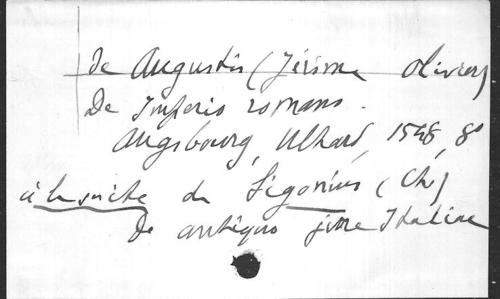 de Augustis (Jérôme Olivier)
De Imperio romano.
Augsbourg, Ulhard, 1548, 8°
à la suite de Sigonius (Ch)
De antiquo jure Italiae